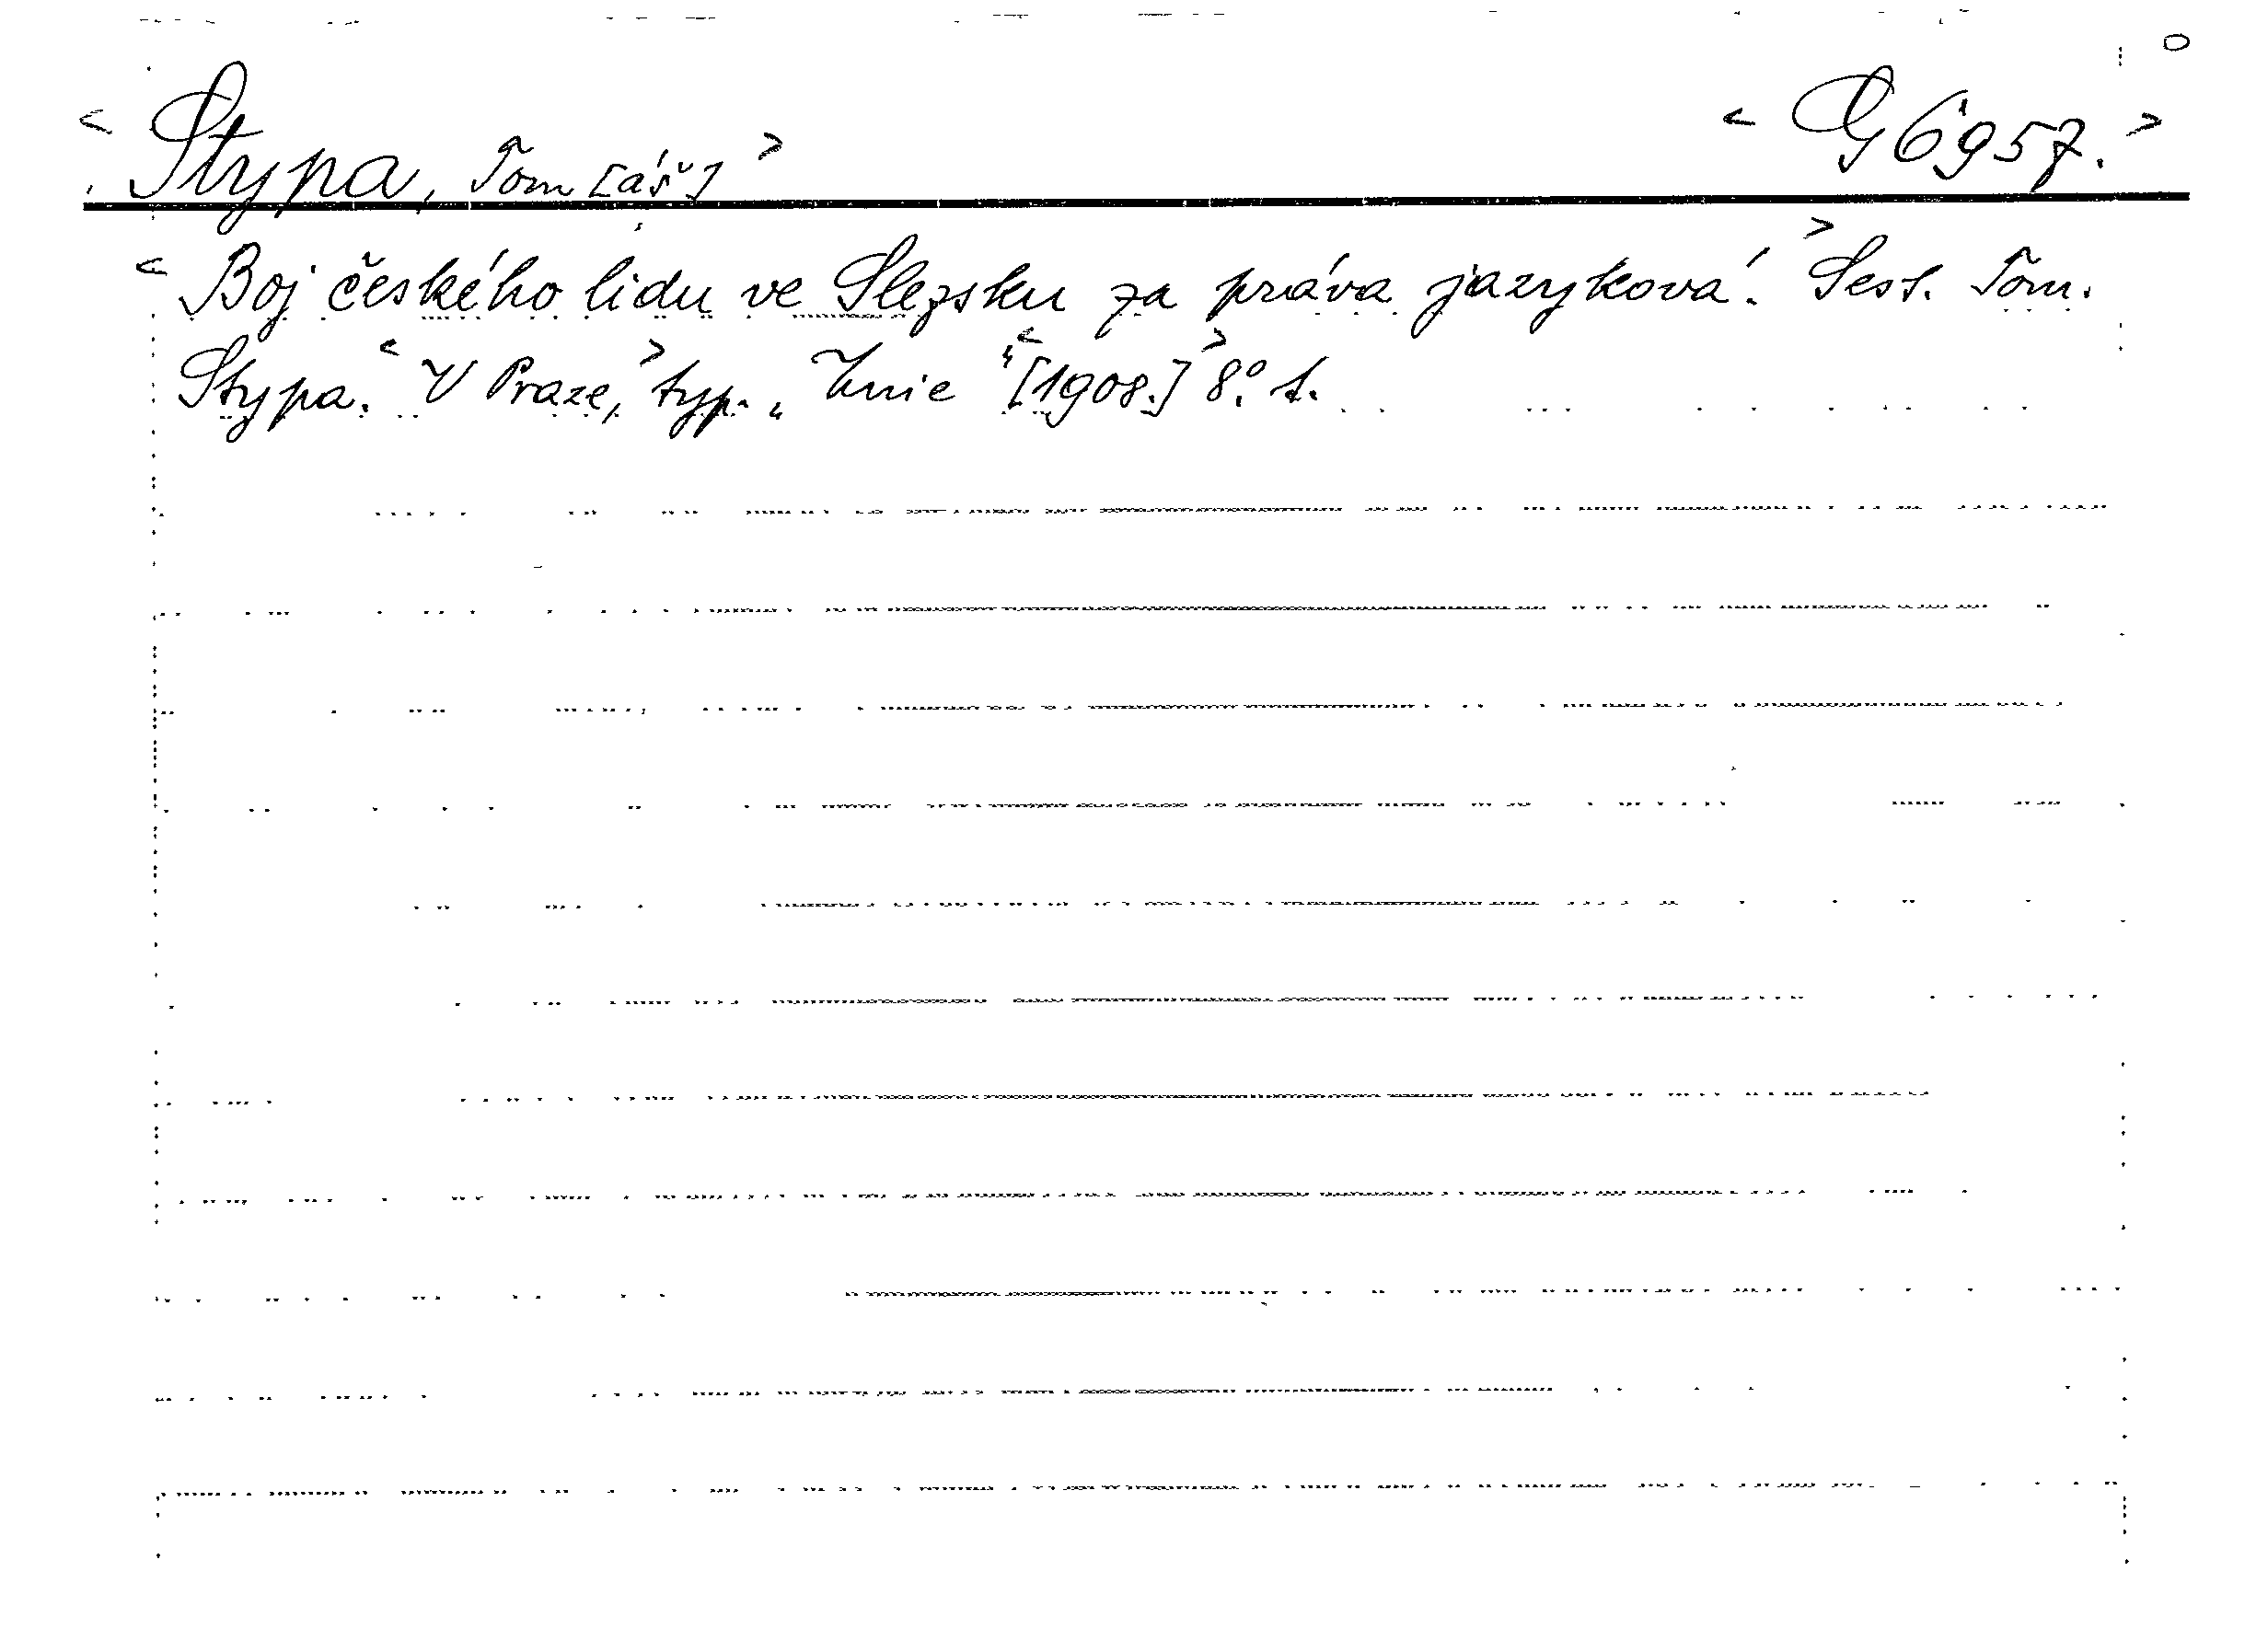 < Stypa, Tom [áš] > < G 6957. >
< Boj českého lidu ve Slezsku za práva jazyková. > Sest. Tom.
Stypa. < V Praze, > typ. „Unie“ < [1908.] > 8°. 1.